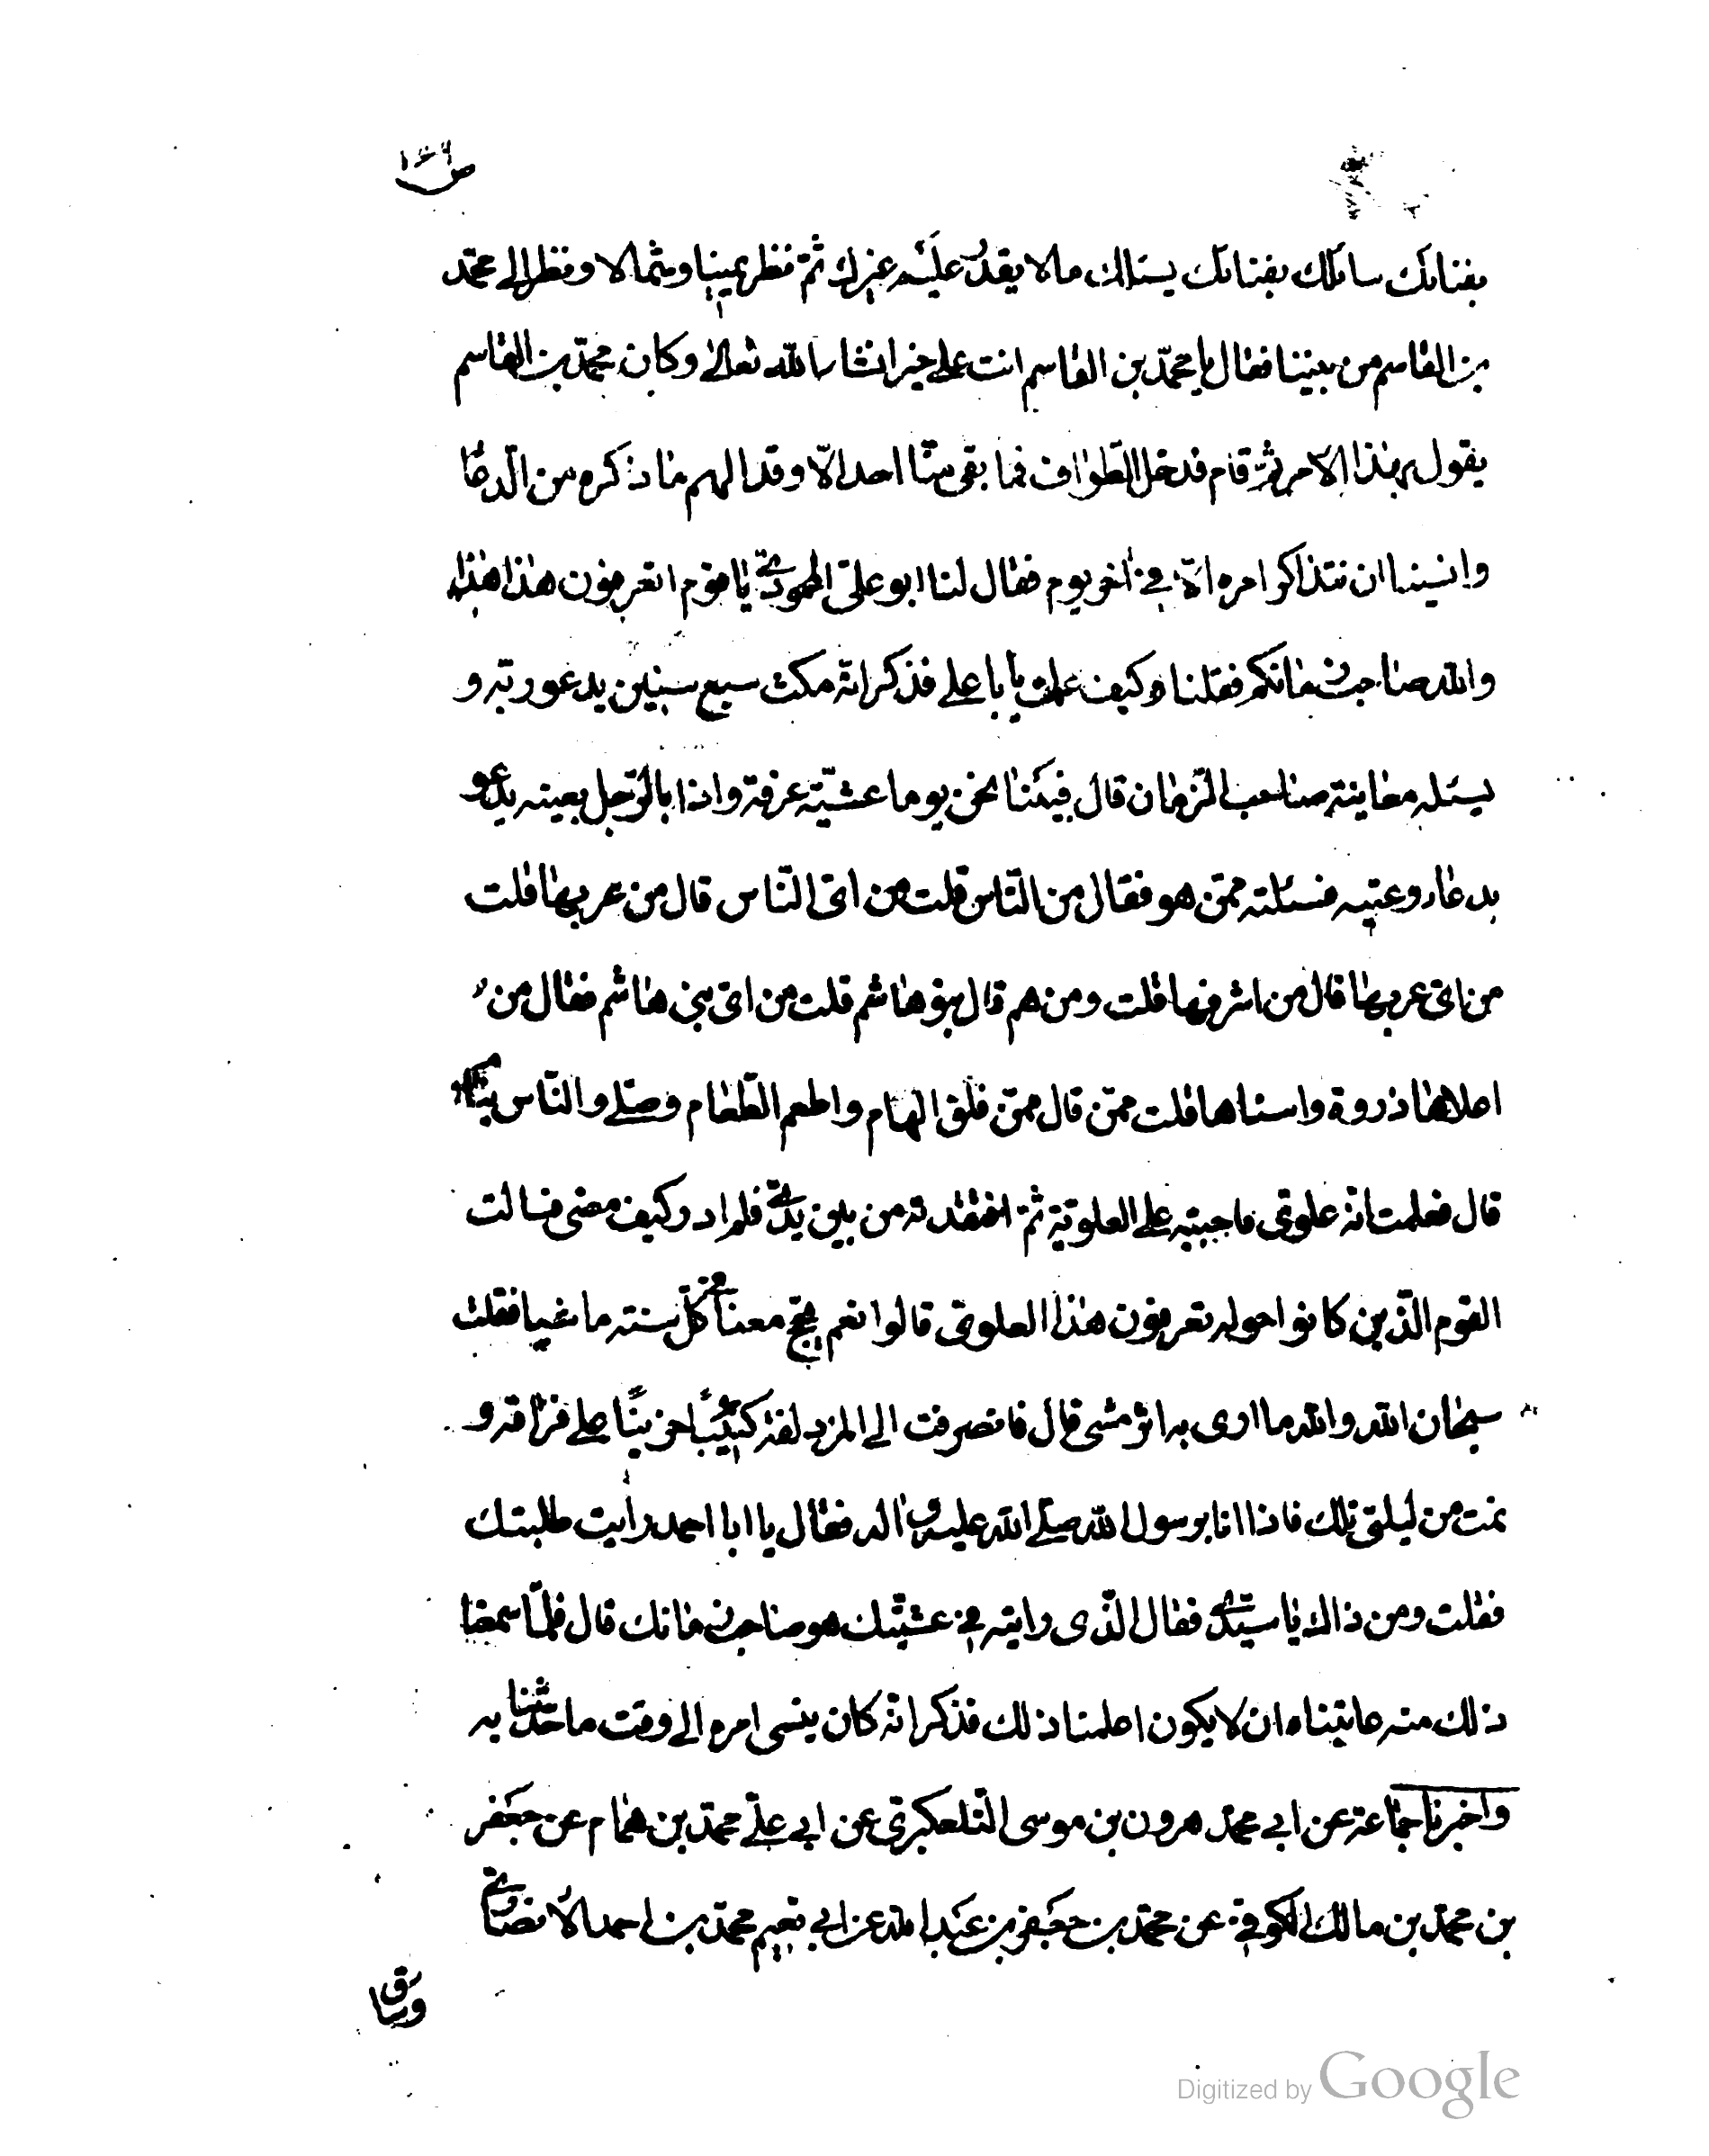 بفنائك سائلك بفنائك يسئلك مالا يقدر عليه غيرك ثمّ نظر يمينا وشمالا ونظر الى محمّد
بن القاسم من بيننا فقال يا محمّد بن القاسم انت على خير انشاء الله تعالى وكان محمّد بن القاسم
يقول بهذا الامر ثمّ قام فدخل الطّواف فما بقى منّا احد الّا وقد الهم ما ذكره من الدّعا
وانسينا ان نتذاكر امره الّا في اخر يوم فقال لنا ابو علىّ المحمودىّ يا قوم اتعرفون هذا هذا
والله صاحب زمانكم فقلنا وكيف علمت يا با على فذكر انّه مكث سبع سنين يدعو ربّه و
يسئله معاينة صاحب الزّمان قال فبينا نحن يوما عشيّة عرفة واذا بالرّجل بعينه يدعو
بدعاء وعيته فسئلته ممّن هو فقال من النّاس قلت من اىّ النّاس قال من عربها قلت
من اىّ عربها قال من اشرفها قلت ومن هم قال بنو هاشم قلت من اىّ بنى هاشم فقال من
اعلاها ذروة واسناها قلت ممّن قال ممّن فلق الهام واطعم الطّعام وصلّى والنّاس نيام
قال فعلمت انّه علوىّ فاحببته على العلويّة ثمّ افتقدته من بين يدىّ فلم ادر كيف مضى فسالت
القوم الّذين كانوا حوله تعرفون هذا العلوىّ قالوا نعم يحجّ معنا في كلّ سنة ماشيا فقلت
سبحان الله والله ما ارى به اثر مشى قال فانصرفت الى المزدلفة كئيبًا حزينًا على فراقه و
نمت من ليلتى تلك فاذا انا برسول الله صلّى الله عليه واله فقال يا ابا احمد رايت طلبتك
فقلت ومن ذاك يا سيّدى فقال الّذى رايته في عشيّتك هو صاحب زمانك قال فلمّا سمعنا
ذلك منه عاتبناه ان لا يكون اعلمنا ذلك فذكر انّه كان ينسى امره الى وقت ما حدّثنا به
واخبرنا جماعة عن ابى محمّد هرون بن موسى التّلعكبرىّ عن ابى علىّ محمّد بن همّام عن جعفر
بن محمّد بن مالك الكوفىّ عن محمّد بن جعفر بن عبد الله عن ابى نعيم محمّد بن احمد الانصارىّ
Digitized by Google